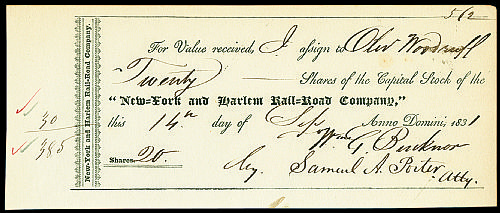 562
For Value received, I assign to Oliv Woodruff
Twenty Shares of the Capital Stock of the
"New=York and Harlem Rail=Road Company,"
this 14th day of Sep Anno Domini, 1831
Wm G. Bucknor
Shares 20. by Samuel A. Porter
Atty.
New-York and Harlem Rail-Road Company.
30
385